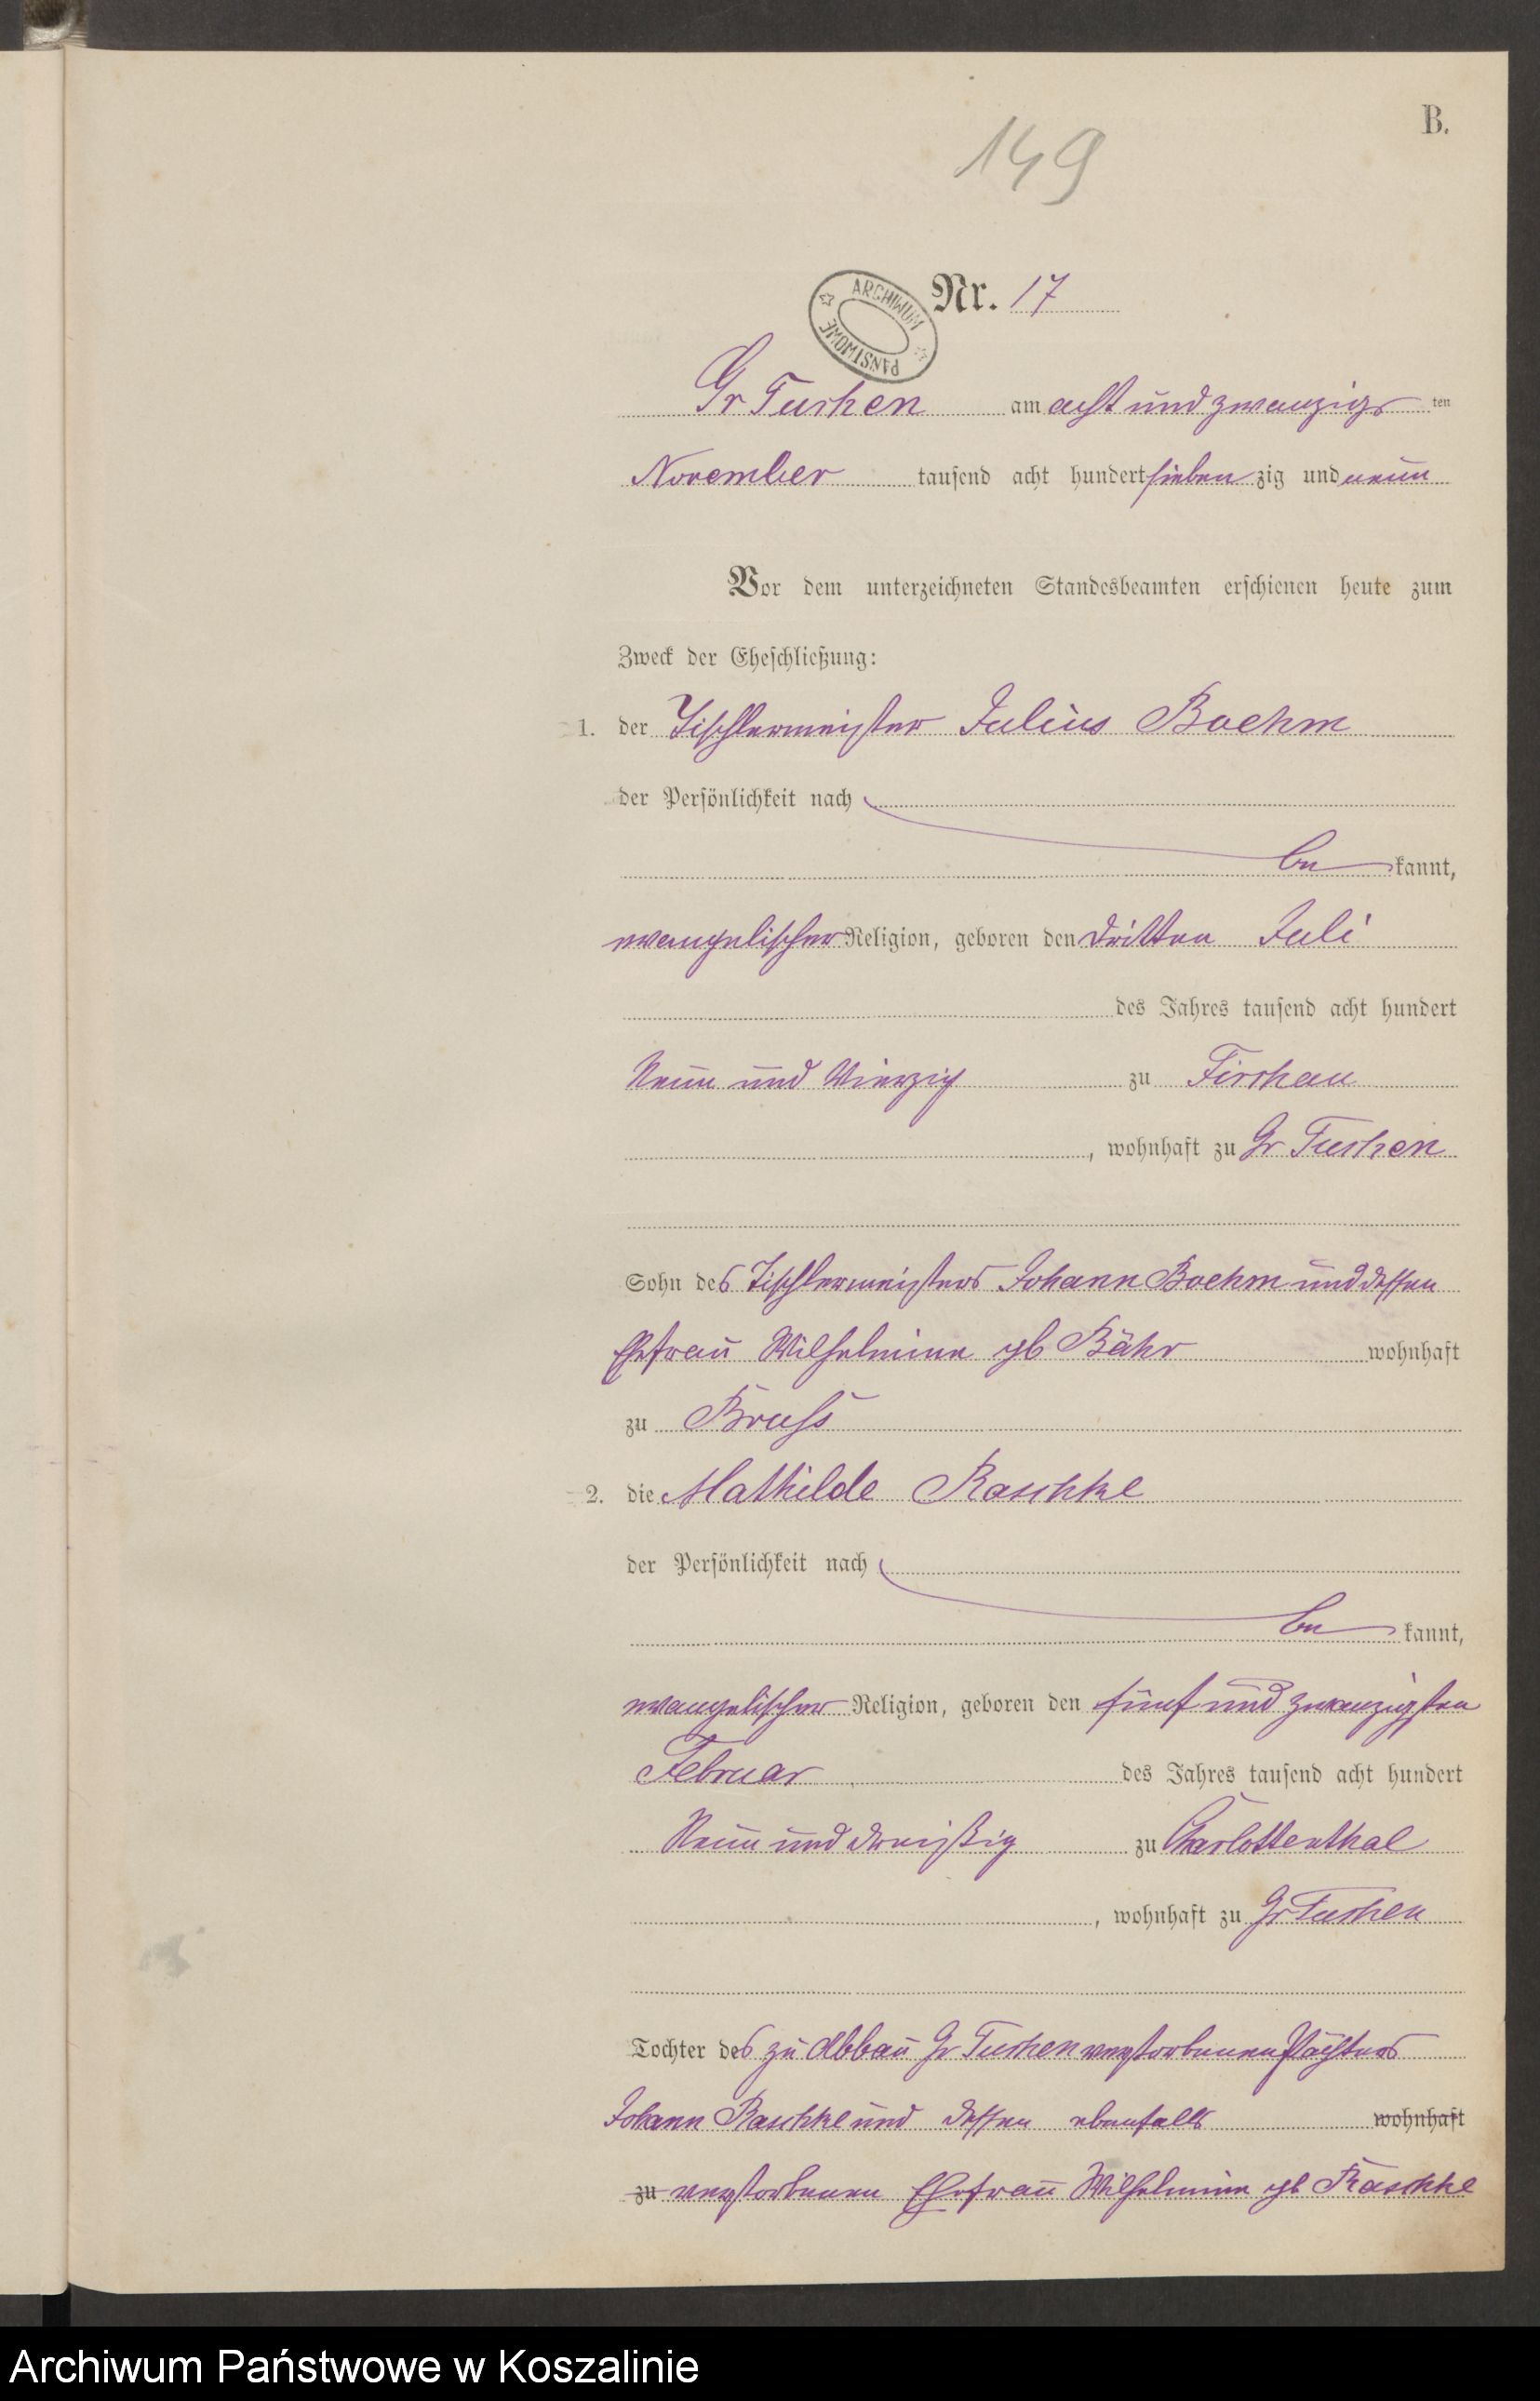 B.
149
ARCHIWUM PAŃSTWOWE
Nr. 17
Gr Tuchen am acht und zwanzigsten
November tausend acht hundert sieben zig und neun
Vor dem unterzeichneten Standesbeamten erschienen heute zum
Zweck der Eheschließung:
1. der Tischlermeister Julius Boehm
der Persönlichkeit nach
be kannt,
evangelischer Religion, geboren den dritten Juli
des Jahres tausend acht hundert
Neun und Vierzig zu Firchau
, wohnhaft zu Gr Tuchen
Sohn des Tischlermeisters Johann Boehm und dessen
Ehefrau Wilhelmine gb Bähr wohnhaft
zu Bruss
2. die Mathilde Raschke
der Persönlichkeit nach
be kannt,
evangelischer Religion, geboren den fünf und zwanzigsten
Februar des Jahres tausend acht hundert
Neun und dreißig zu Charlottenthal
, wohnhaft zu Gr Tuchen
Tochter des zu Abbau Gr Tuchen verstorbenen Pächters
Johann Raschke und dessen ebenfalls wohnhaft
zu verstorbenen Ehefrau Wilhelmine gb Raschke
Archiwum Państwowe w Koszalinie